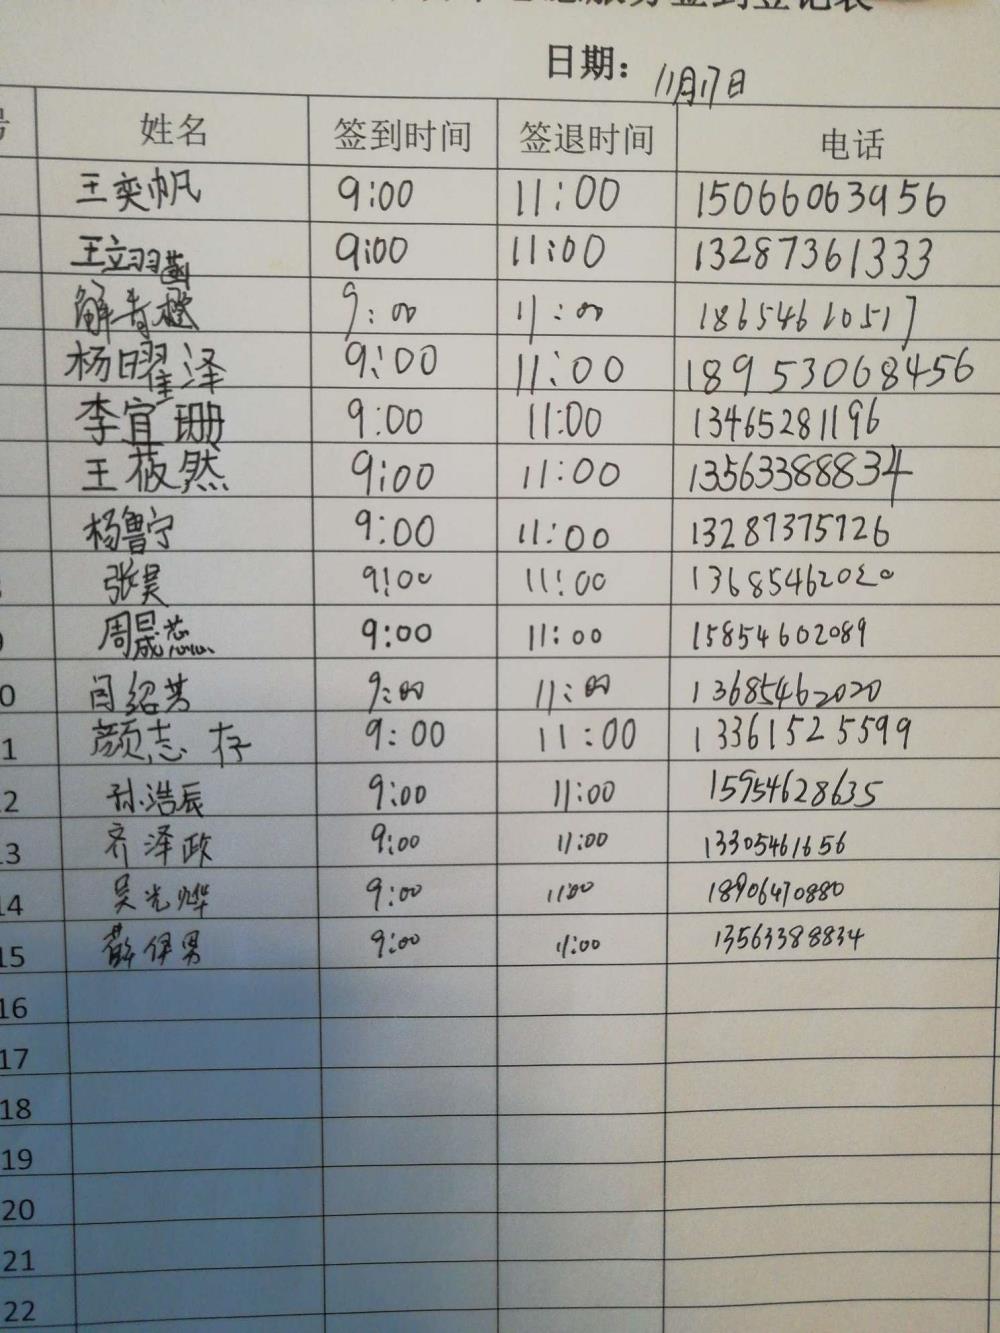 服务签到登记表
日期： 11月17日
号 姓名 签到时间 签退时间 电话
王奕帆 9:00 11:00 15066063956
王立羽菡 9:00 11:00 13287361333
解青 9:00 11:00 18654610517
杨曜泽 9:00 11:00 18953068456
李宜珊 9:00 11:00 13465281196
王莜然 9:00 11:00 13563388834
杨鲁宁 9:00 11:00 13287375726
张昊 9:00 11:00 13685462020
9 周晟蕊 9:00 11:00 15854602089
10 闫绍芳 9:00 11:00 13685462020
11 颜志存 9:00 11:00 13361525599
12 孙浩辰 9:00 11:00 15954628635
13 齐泽政 9:00 11:00 13305461656
14 吴光烨 9:00 11:00 18906470880
15 薛伊男 9:00 11:00 13563388834
16
17
18
19
20
21
22